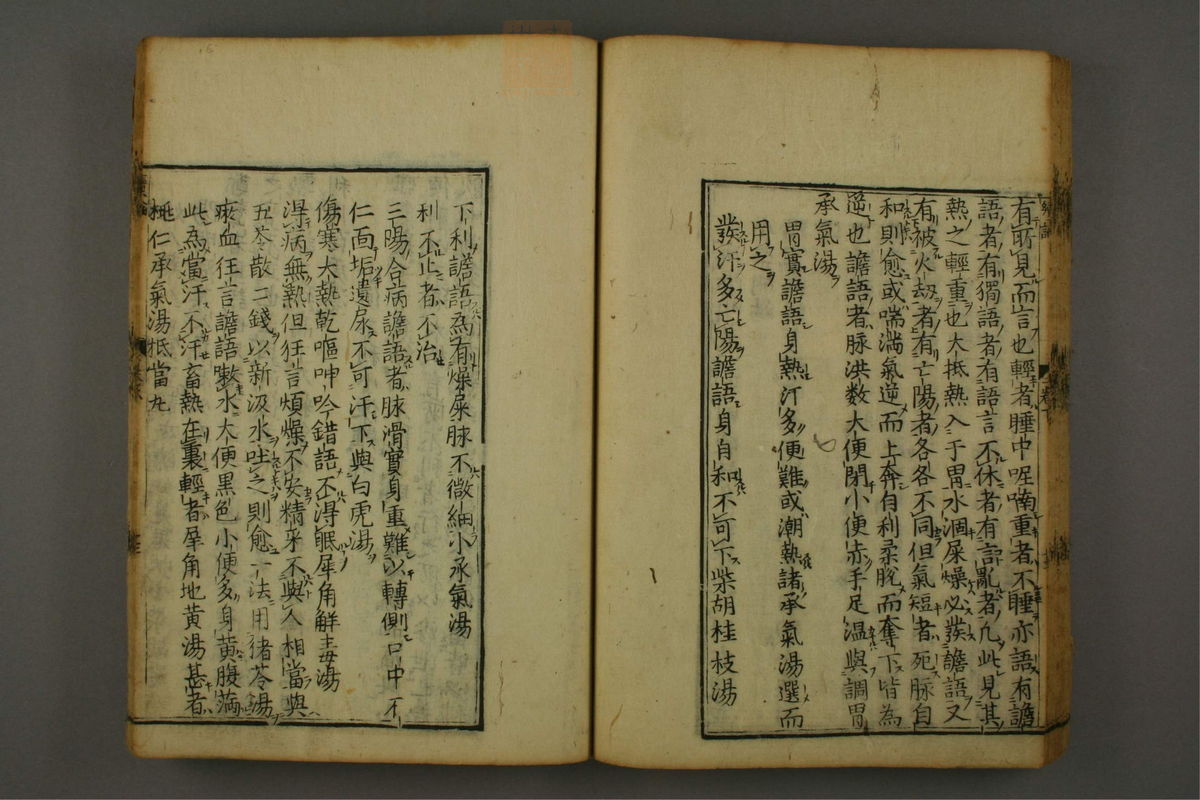 有所見而言也輕者睡中呢喃重者不睡亦語有譫
語者有獨語者有語言不休者有言亂者凡此見其
熱之輕重也大抵熱入于胃水涸屎燥必發譫語又
有被火劫者有亡陽者各各不同但氣短者死脉自
和則愈或喘滿氣逆而上奔自利柔脫而奪下皆為
逆也譫語者脉洪数大便閉小便赤手足温與調胃
承氣湯
胃實譫語身熱汗多便難或潮熱諸承氣湯選而
用之
發汗多亡陽譫語身自和不可下柴胡桂枝湯
下利譫語為有燥屎脉不微細小承氣湯
利不止者不治
三陽合病譫語者脉滑實身重難以轉側口中不
仁面垢遺尿不可汗下與白虎湯
傷寒大熱乾嘔呻吟錯語不得眠犀角解毒湯
得病無熱但狂言煩燥不安精采不與人相當與
五苓散二錢以新汲水吐之則愈一法用猪苓湯
瘀血狂言譫語漱水大便黒色小便多身黄腹滿
此為當汗不汗畜熱在裏輕者犀角地黄湯甚者
桃仁承氣湯抵當丸